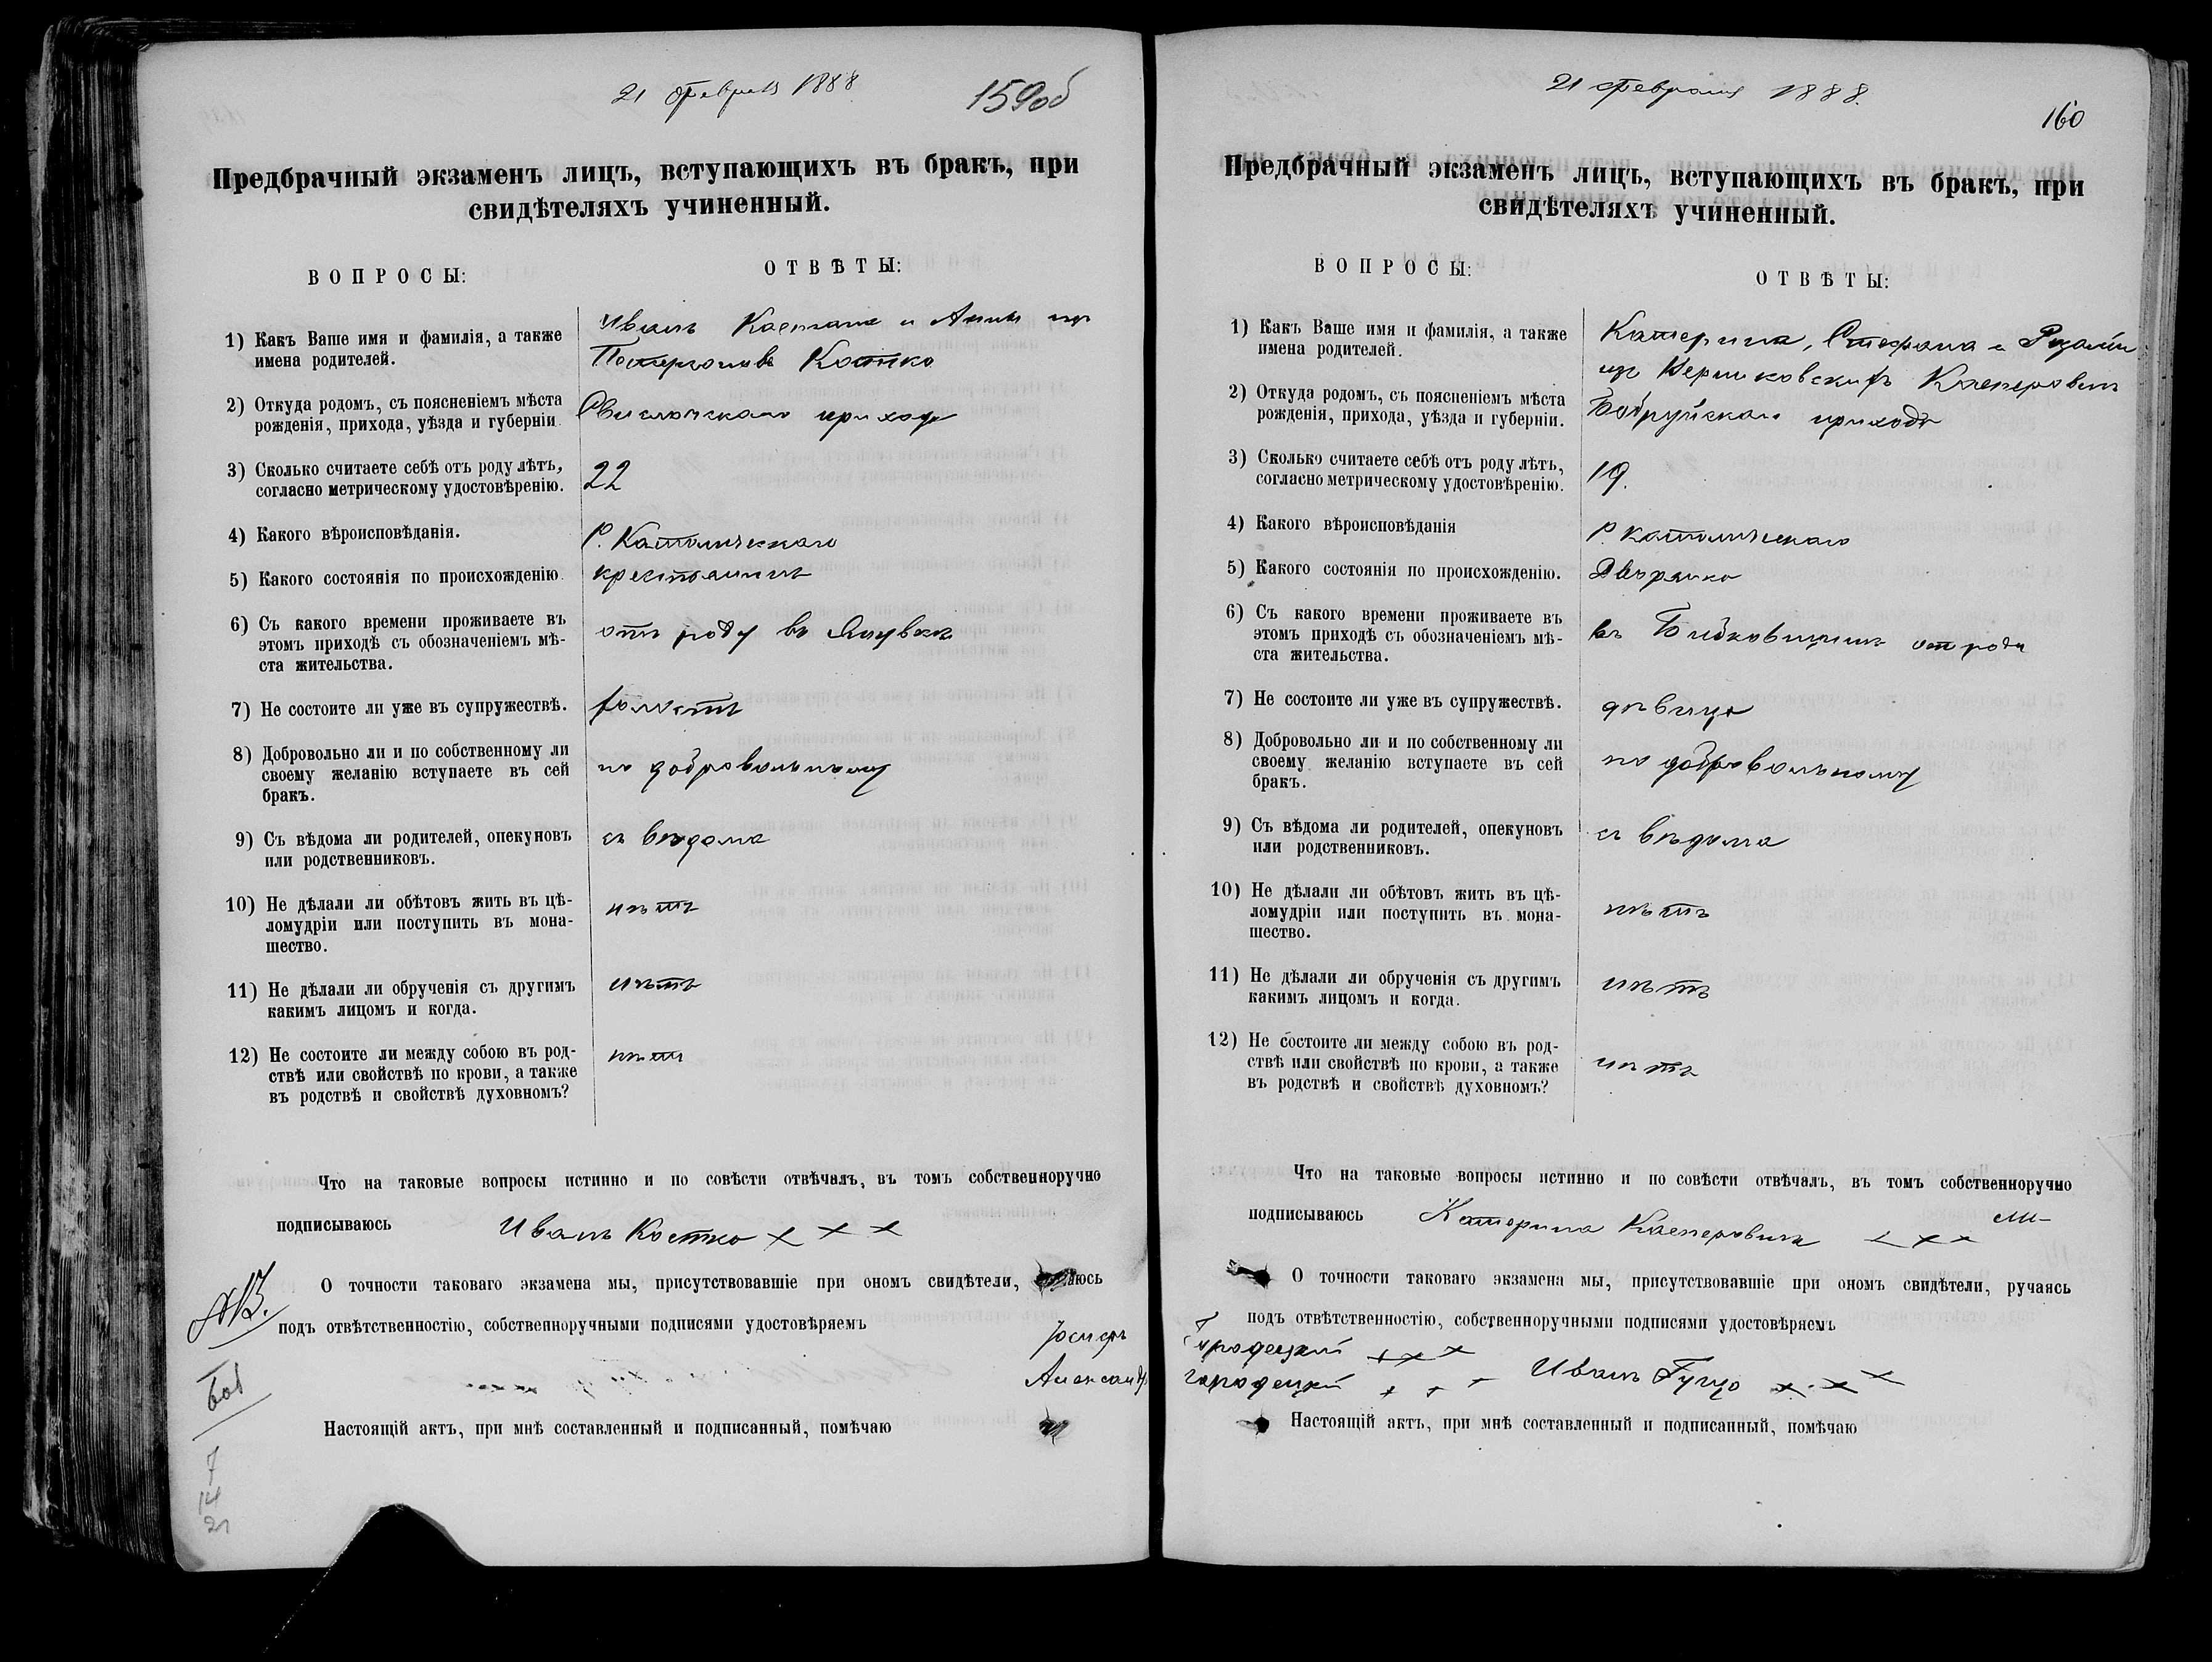 21 февраля 1888
159об
Предбрачный экзаменъ лицъ, вступающихъ въ бракъ, при
свидѣтеляхъ учиненный.
ВОПРОСЫ:
ОТВѢТЫ:
1) Какъ Ваше имя и фамилія, а также
имена родителей.
Иванъ и Анны изъ
Котко
2) Откуда родомъ, съ поясненіемъ мѣста
рожденія, прихода, уѣзда и губерніи.
Свислочскаго прихода
3) Сколько считаете себѣ отъ роду лѣтъ,
согласно метрическому удостовѣренію.
22
4) Какого вѣроисповѣданія.
Р. Католическаго
5) Какого состоянія по происхожденію.
крестьянинъ
6) Съ какого времени проживаете въ
этомъ приходѣ съ обозначеніемъ мѣ-
ста жительства.
отъ роду въ
7) Не состоите ли уже въ супружествѣ.
холостъ
8) Добровольно ли и по собственному ли
своему желанію вступаете въ сей
бракъ.
по добровольному
9) Съ вѣдома ли родителей, опекуновъ
или родственниковъ.
съ вѣдома
10) Не дѣлали ли обѣтовъ жить въ цѣ-
ломудріи или поступить въ мона-
шество.
нѣтъ
11) Не дѣлали ли обрученія съ другимъ
какимъ лицомъ и когда.
нѣтъ
12) Не состоите ли между собою въ род-
ствѣ или свойствѣ по крови, а также
въ родствѣ и свойствѣ духовномъ?
нѣтъ
Что на таковые вопросы истинно и по совѣсти отвѣчалъ, въ томъ собственноручно
подписываюсь Иванъ Костко × × ×
О точности таковаго экзамена мы, присутствовавшіе при ономъ свидѣтели,
подъ отвѣтственностію, собственноручными подписями удостовѣряемъ
Іосифъ
Александръ
Настоящій актъ, при мнѣ составленный и подписанный, помѣчаю
7
14
21
21 февраля 1888.
160
Предбрачный экзаменъ лицъ, вступающихъ въ бракъ, при
свидѣтеляхъ учиненный.
ВОПРОСЫ:
ОТВѢТЫ:
1) Какъ Ваше имя и фамилія, а также
имена родителей.
Катерина, Стефана и Розаліи
изъ Касперовичъ
2) Откуда родомъ, съ поясненіемъ мѣста
рожденія, прихода, уѣзда и губерніи.
Бобруйскаго прихода
3) Сколько считаете себѣ отъ роду лѣтъ,
согласно метрическому удостовѣренію.
19.
4) Какого вѣроисповѣданія
Р. католическаго
5) Какого состоянія по происхожденію.
Дворянка
6) Съ какого времени проживаете въ
этомъ приходѣ съ обозначеніемъ мѣ-
ста жительства.
въ отъ роду
7) Не состоите ли уже въ супружествѣ.
дѣвица
8) Добровольно ли и по собственному ли
своему желанію вступаете въ сей
бракъ.
по добровольному
9) Съ вѣдома ли родителей, опекуновъ
или родственниковъ.
съ вѣдома
10) Не дѣлали ли обѣтовъ жить въ цѣ-
ломудріи или поступить въ мона-
шество.
нѣтъ
11) Не дѣлали ли обрученія съ другимъ
какимъ лицомъ и когда.
нѣтъ
12) Не состоите ли между собою въ род-
ствѣ или свойствѣ по крови, а также
въ родствѣ и свойствѣ духовномъ?
нѣтъ
Что на таковые вопросы истинно и по совѣсти отвѣчалъ, въ томъ собственноручно
подписываюсь Катерина Касперовичъ × × ×
О точности таковаго экзамена мы, присутствовавшіе при ономъ свидѣтели, ручаясь
подъ отвѣтственностію, собственноручными подписями удостовѣряемъ
Городецкій × × ×
Городецкій × × × Иванъ × × ×
Настоящій актъ, при мнѣ составленный и подписанный, помѣчаю